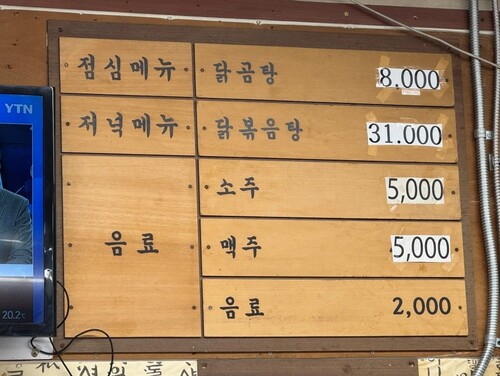 점심메뉴 닭곰탕 8.000
저녁메뉴 닭볶음탕 31.000
음료
소주 5,000
맥주 5,000
음료 2,000
YTN
20.2℃